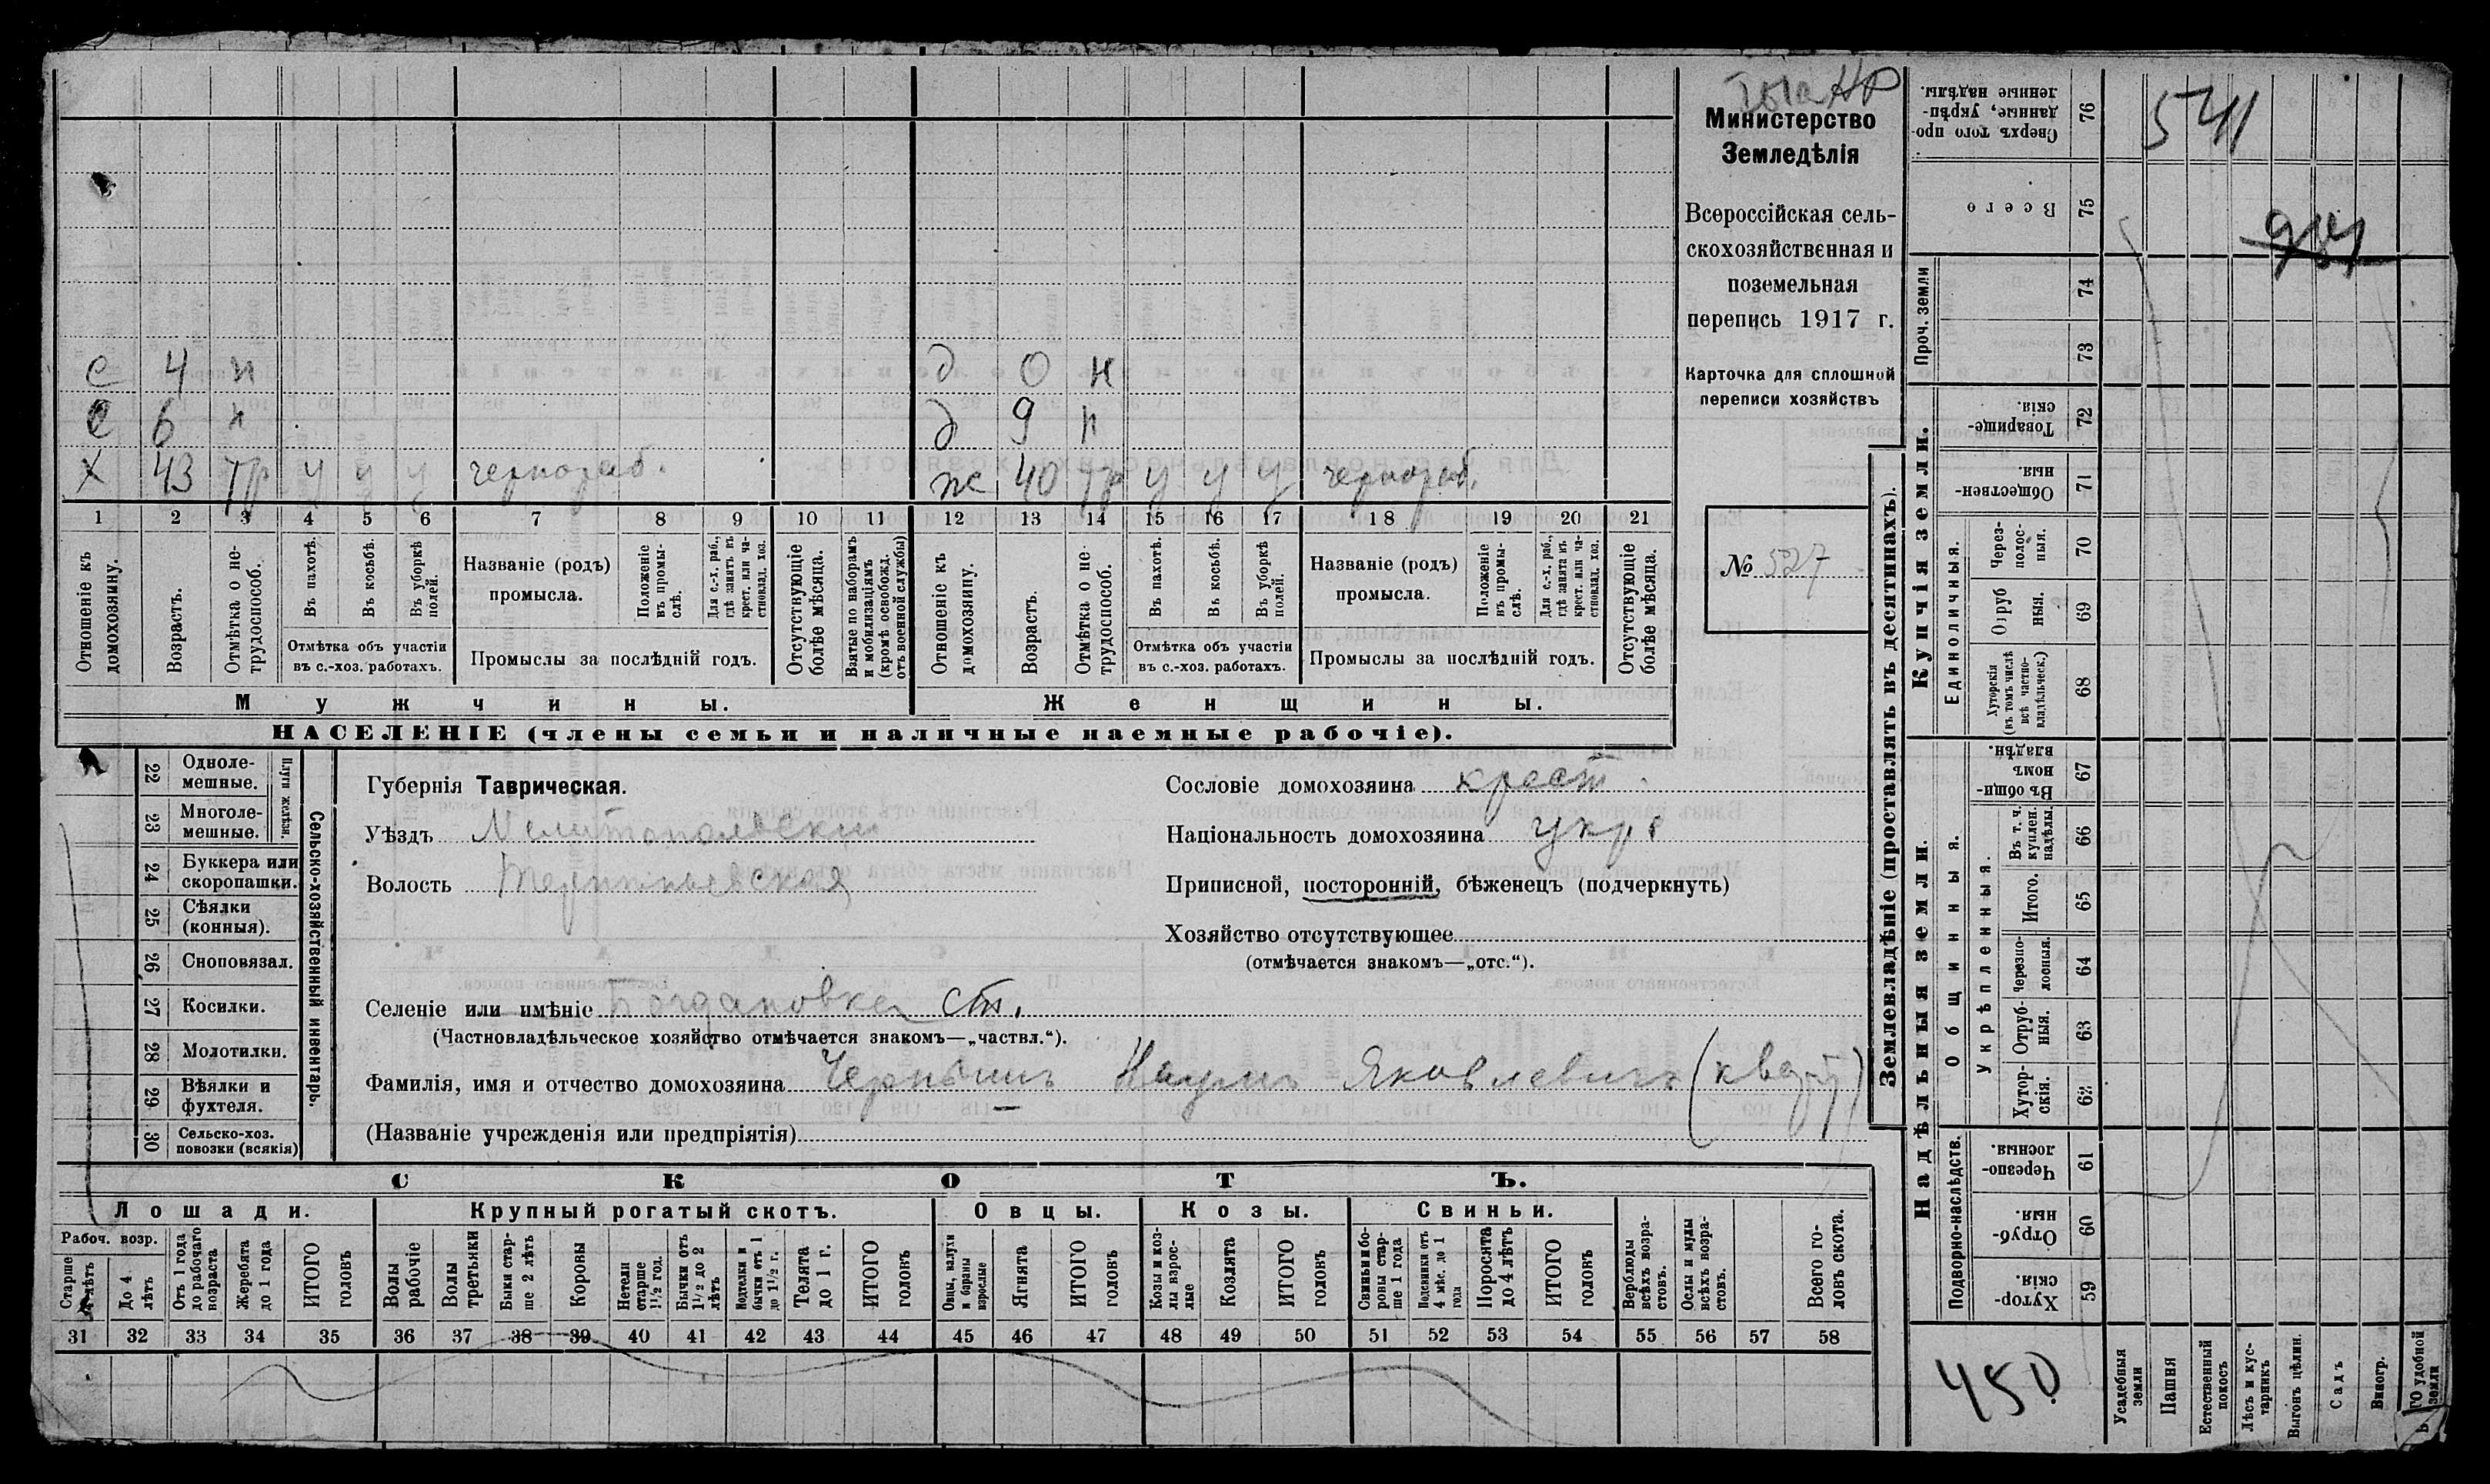 Министерство
Земледѣлія
Всероссійская сель-
скохозяйственная и
поземельная
перепись 1917 г.
Карточка для сплошной
переписи хозяйствъ
№ 527
с 4 н д 0 н
с 6 н д 9 н
х 43 тр у у у чернораб. ж 40 тр у у у чернораб.
1 2 3 4 5 6 7 8 9 10 11 12 13 14 15 16 17 18 19 20 21
Отношеніе къ домохозяину.
Возрастъ.
Отмѣтка о нетрудоспособ.
Въ пахотѣ.
Въ косьбѣ.
Въ уборкѣ полей.
Отмѣтка объ участіи
въ с.-хоз. работахъ.
Названіе (родъ)
промысла.
Положеніе въ промыслѣ.
Для с.-х. раб., гдѣ занятъ въ крест. или частновлад. хоз.
Промыслы за послѣдній годъ.
Отсутствующіе болѣе мѣсяца.
Взятые по наборамъ и мобилизаціямъ (кромѣ освобожд. отъ военной службы)
Отношеніе къ домохозяину.
Возрастъ.
Отмѣтка о не трудоспособ.
Въ пахотѣ.
Въ косьбѣ.
Въ уборкѣ полей.
Отмѣтка объ участіи
въ с.-хоз. работахъ.
Названіе (родъ)
промысла.
Положеніе въ промыслѣ.
Для с.-х. раб., гдѣ занята въ крест. или частновлад. хоз.
Промыслы за послѣдній годъ.
Отсутствующіе болѣе мѣсяца.
Мужчины. Женщины.
НАСЕЛЕНІЕ (члены семьи и наличные наемные рабочіе).
22 Однолемешные.
23 Многолемешные.
Плуги желѣзн.
24 Буккера или скоропашки.
25 Сѣялки (конныя).
26 Сноповязал.
27 Косилки.
28 Молотилки.
29 Вѣялки и фухтеля.
30 Сельско-хоз. повозки (всякія)
Сельско-хозяйственный инвентарь.
Губернія Таврическая.
Уѣздъ Мелитопольскій
Волость
Сословіе домохозяина крест.
Національность домохозяина укр.
Приписной, посторонній, бѣженецъ (подчеркнуть)
Хозяйство отсутствующее
(отмѣчается знакомъ—„отс.“).
Селеніе или имѣніе Богдановка ст.
(Частновладѣльческое хозяйство отмѣчается знакомъ—„частвл.“).
Фамилія, имя и отчество домохозяина Чернышъ Наумъ Яковлевичъ (кварт)
(Названіе учрежденія или предпріятія)
СКОТЪ.
Лошади. Крупный рогатый скотъ. Овцы. Козы. Свиньи.
Рабоч. возр.
Старше 4 лѣтъ
До 4 лѣтъ
Отъ 1 года до рабочаго возраста
Жеребята до 1 года
ИТОГО головъ
Волы рабочіе
Волы третьяки
Быки старше 2 лѣтъ
Коровы
Нетели старше 1½ год.
Бычки отъ 1½ до 2 лѣтъ
Подтелки и бычки отъ 1 до 1½ г.
Телята до 1 г.
ИТОГО головъ
Овцы, валухи и бараны взрослые
Ягнята
ИТОГО головъ
Козы и козлы взрослые
Козлята
ИТОГО головъ
Свиньи и боровы старше 1 года
Подсвинки отъ 4 мѣс. до 1 года
Поросята до 4 лѣтъ
ИТОГО головъ
Верблюды всѣхъ возрастовъ.
Ослы и мулы всѣхъ возрастовъ.
Всего головъ скота.
31 32 33 34 35 36 37 38 39 40 41 42 43 44 45 46 47 48 49 50 51 52 53 54 55 56 57 58
Землевладѣніе (проставлять въ десятинахъ).
Купчія земли.
Надѣльныя земли.
Сверхъ того проданные, укрѣпленные надѣлы. 76
Всего 75
Проч. земли 74 73
Товарищескія. 72
Общественныя. 71
Единоличныя.
Черезполосныя. 70
Отрубныя. 69
Хуторскія (въ томъ числѣ всѣ частновладѣльческ.) 68
Общинныя.
Въ общинномъ владѣн. 67
Укрѣпленныя.
Въ т. ч. куплен. надѣлы 66
Итого. 65
Черезполосныя. 64
Отрубныя. 63
Хуторскія. 62
Подворно-наслѣдств.
Черезполосныя. 61
Отрубныя. 60
Хуторскія. 59
Усадебныя земли
Пашня
Естественный покосъ
Лѣсъ и кустарникъ
Выгонъ цѣлин.
Садъ
Виногр.
удобной земли
541
450